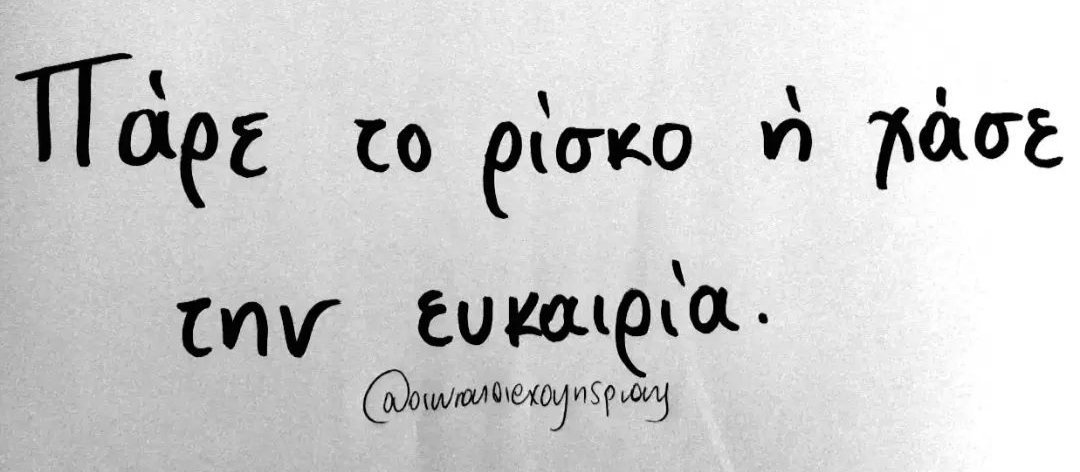 Πάρε το ρίσκο ή χάσε
την ευκαιρία.